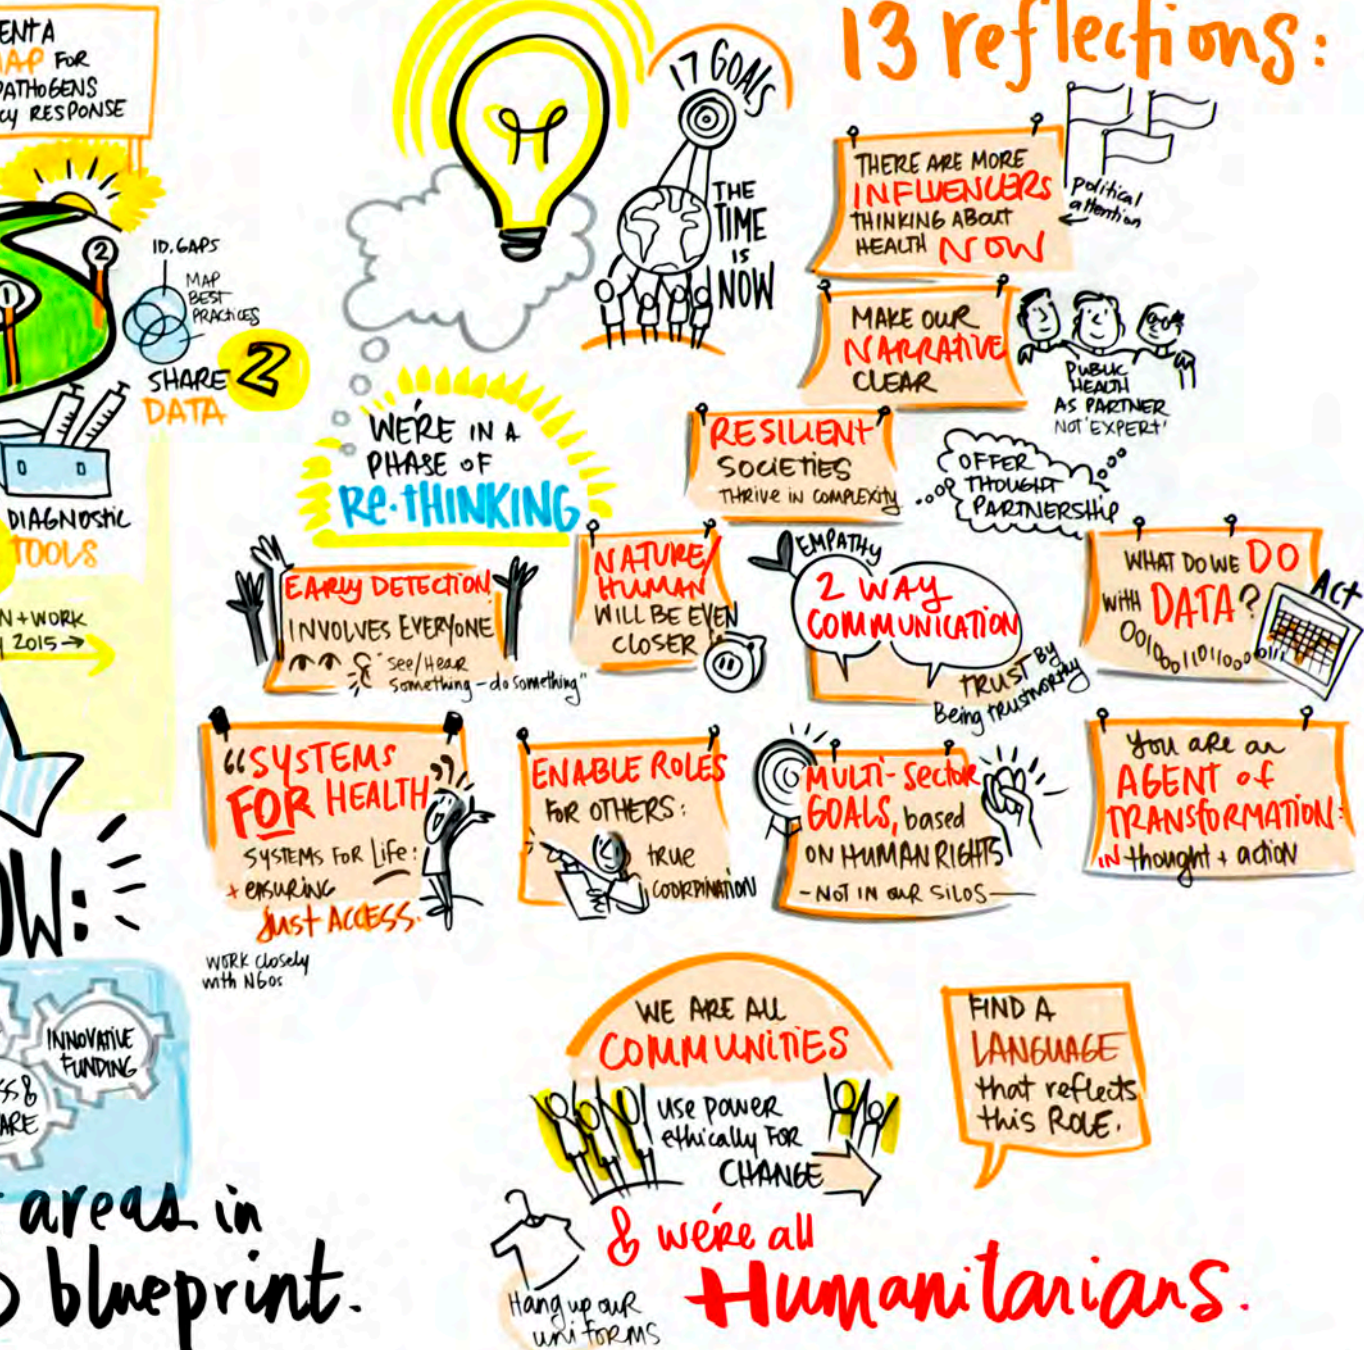 ENT A
MAP FOR
PATHOGENS
CY RESPONSE
1
2
ID. GAPS
MAP
BEST
PRACTICES
SHARE 2
DATA
DIAGNOSTIC
TOOLS
N + WORK
2015 →
OW:
INNOVATIVE
FUNDING
SS &
ARE
areas in
blueprint.
17 GOALS
THE
TIME
IS
NOW
WE'RE IN A
PHASE OF
RE-THINKING
13 reflections:
THERE ARE MORE
INFLUENCERS
THINKING ABOUT
HEALTH NOW
political
attention
MAKE OUR
NARRATIVE
CLEAR
PUBLIC
HEALTH
AS PARTNER
NOT 'EXPERT'
RESILIENT
SOCIETIES
THRIVE IN COMPLEXITY
OFFER
THOUGHT
PARTNERSHIP
EARLY DETECTION
INVOLVES EVERYONE
"SEE/HEAR
Something - do something"
NATURE/
HUMAN
WILL BE EVEN
CLOSER
EMPATHY
2 WAY
COMMUNICATION
TRUST BY
Being TRUSTWORTHY
WHAT DO WE DO
WITH DATA?
ACT
"SYSTEMS
FOR HEALTH"
SYSTEMS FOR Life:
+ ENSURING
JUST ACCESS.
WORK closely
with NGOs
ENABLE ROLES
FOR OTHERS:
TRUE
COORDINATION
MULTI-Sector
GOALS, based
ON HUMAN RIGHTS
- NOT IN OUR SILOS -
You are an
AGENT of
TRANSFORMATION:
IN thought + action
WE ARE ALL
COMMUNITIES
USE POWER
ethically FOR
CHANGE
FIND A
LANGUAGE
that reflects
this ROLE.
& we're all
Humanitarians.
Hang up our
uniforms